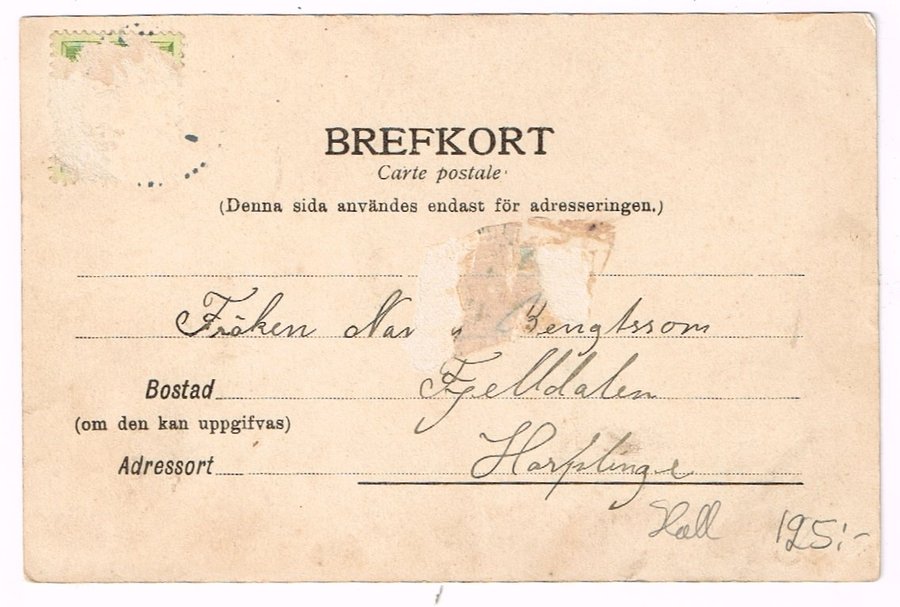 BREFKORT
Carte postale
(Denna sida användes endast för adresseringen.)
Fröken Bengtsson
Bostad Fjelldalen
(om den kan uppgifvas)
Adressort Harplinge
Hall 125:-